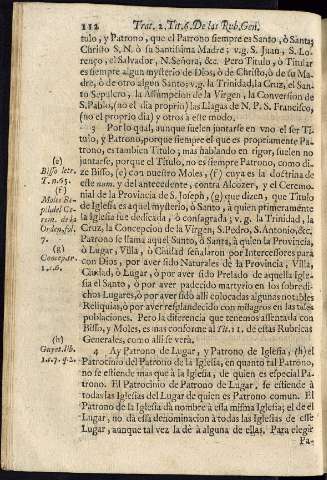 112 Trat. 2. Tit. 6. De las Rub. Gen.
tulo, y Patrono, que el Patrono siempre es Santo, ò Santa;
Christo S. N. ò su Santissima Madre; v.g. S. Juan, S. Lo-
renço, el Salvador, N. Señora, &c. Pero Titulo, ò Titular
es siempre algun mysterio de Dios, ò de Christo, ò de su Ma-
dre, ò de otro algun Santo; v.g. la Trinidad, la Cruz, el San-
to Sepulcro, la Assumpcion de la Virgen, la Conversion de
S. Pablo, (no el dia proprio) las Llagas de N. P. S. Francisco,
(no el proprio dia) y otros à este modo.
3 Por lo qual, aunque suelen juntarse en vno el ser Ti-
tulo, y Patrono, porque siempre el que es propriamente Pa-
trono, es tambien Titulo; mas hablando en rigor, suelen no
juntarse, porque el Titulo, no es siempre Patrono, como di-
ze Bisso, (e) con nuestro Moles, (f) cuya es la doctrina de
este num. y del antecedente, contra Alcozer, y el Ceremo-
nial de la Provincia de S. Joseph, (g) que dizen, que Titulo
de Iglesia es aquel mysterio, ò Santo, à quien primeramente
la Iglesia fue dedicada, ò consagrada; v.g. la Trinidad, la
Cruz, la Concepcion de la Virgen, S. Pedro, S. Antonio, &c.
Patrono se llama aquel Santo, ò Santa, à quien la Provincia,
ò Lugar, Villa, ò Ciudad señalaron por Intercessores para
con Dios, por aver sido Naturales de la Provincia, Villa,
Ciudad, ò Lugar, ò por aver sido Prelado de aquella Igle-
sia el Santo, ò por aver padecido martyrio en los sobredi-
chos Lugares, ò por aver sido alli colocadas algunas notables
Reliquias, ò por aver resplandecido con milagros en las tales
poblaciones. Pero la diferencia que tenemos assentada con
Bisso, y Moles, es mas conforme al Tit. 11. de estas Rubricas
Generales, como alli se verà.
4 Ay Patrono de Lugar, y Patrono de Iglesia, (h) el
Patrocinio del Patrono de la Iglesia, en quanto tal Patrono,
no se estiende mas que à la Iglesia, de quien es especial Pa-
trono. El Patrocinio de Patrono de Lugar, se estiende à
todas las Iglesias del Lugar de quien es Patrono comun. El
Patrono de la Iglesia dà nombre à essa misma Iglesia; el de el
Lugar, no dà essa denominacion à todas las Iglesias de esse
Lugar, aunque tal vez la dè à alguna de ellas. Para elegir
Pa-
(e)
Bisso letr.
T. n. 65.
(f)
Moles
Orden, fol.
7.
(g)
1. c. 6.
(h)